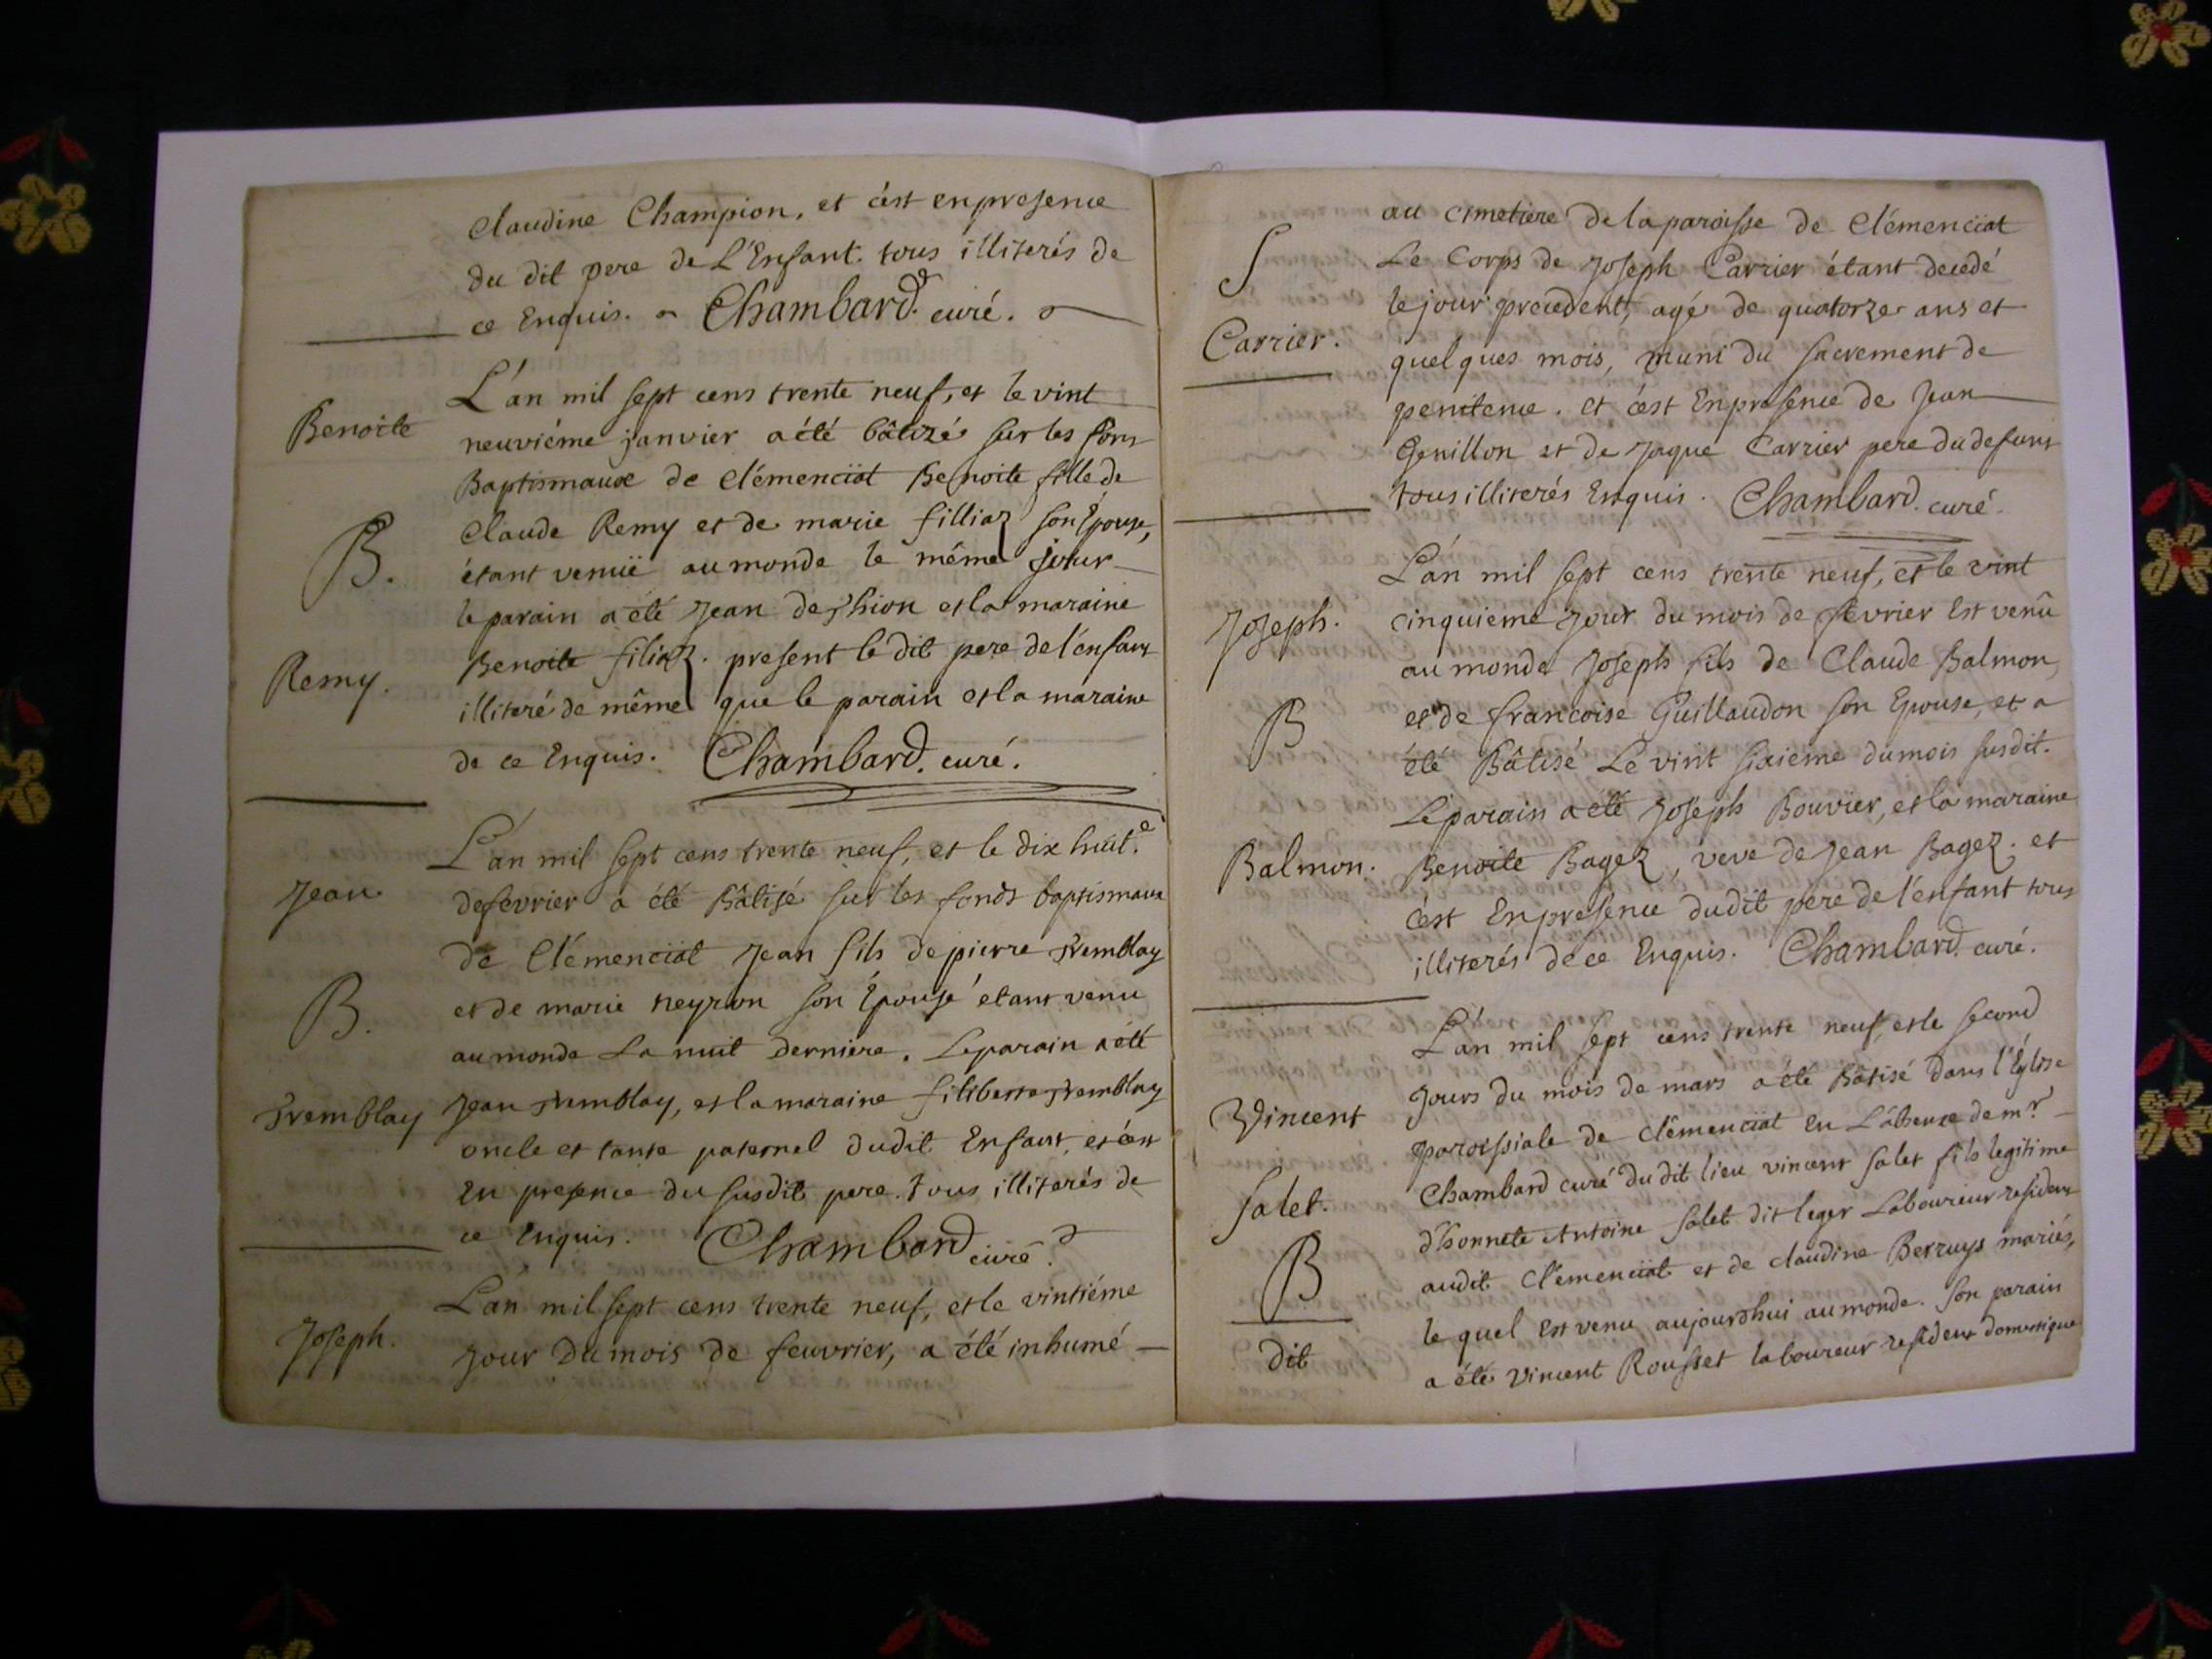 Claudine Champion, et c'est en presence
du dit pere de L'Enfant. tous illiterés de
ce Enquis. Chambard. curé.
Benoite
B.
Remy.
L'an mil sept cens trente neuf, et le vint
neuviéme janvier a été bâtizé sur les fons
Baptismaux de Clémenciat Benoite fille de
Claude Remy et de marie filliaz son Épouse,
étant venüe au monde le même jour
le parain a été Jean deshion et la maraine
Benoite filiaz. present le dit pere de l'enfant
illiteré de même que le parain et la maraine
de ce Enquis. Chambard. curé.
Jean
B.
Tremblay
L'an mil sept cens trente neuf, et le dix huit.e
de fevrier a été Bâtisé sur les fonds baptismaux
de Clémenciat Jean fils de pierre Tremblay
et de marie neyron son Épouse étant venu
au monde La nuit derniere. Le parain a été
Jean Tremblay, et la maraine filiberte Tremblay
oncle et tante paternel dudit Enfant, et c'est
En presence du susdit pere. tous illiterés de
ce Enquis. Chambard curé.
Joseph.
L'an mil sept cens trente neuf, et le vintiéme
Jour Du mois de feuvrier, a été inhumé
S
Carrier.
au cimetiere de la paroisse de Clémenciat
Le Corps de Joseph Carrier étant decedé
le jour precedent, agé de quatorze ans et
quelques mois, muni du sacrement de
penitence. et c'est En presence de Jean
Genillon et de Jaque Carrier pere du defunt
tous illiterés Enquis. Chambard. curé.
Joseph.
B
Balmon.
L'an mil sept cens trente neuf, et le vint
cinquieme Jour du mois de fevrier Est venû
au monde Joseph fils de Claude Balmon,
et de francoise Guillaudon son Epouse, et a
été Bâtisé Le vint sixieme du mois susdit.
Le parain a été Joseph Bouvier, et la maraine
Benoite Bagez, veve de Jean Bagez. et
c'est En presence dudit pere de l'enfant tous
illiterés de ce Enquis. Chambard. curé.
Vincent
Salet.
B
dit
L'an mil sept cens trente neuf, et le second
Jours du mois de mars a été Bâtisé dans l'Église
paroissiale de Clémenciat en L'absence de mr
Chambard curé du dit lieu vincent salet fils legitime
d'honnete Antoine salet dit leger Laboureur resident
audit Clémenciat et de claudine Berruys mariés,
le quel Est venu aujourdhui au monde. son parain
a été Vincent Rousset laboureur resident domestique